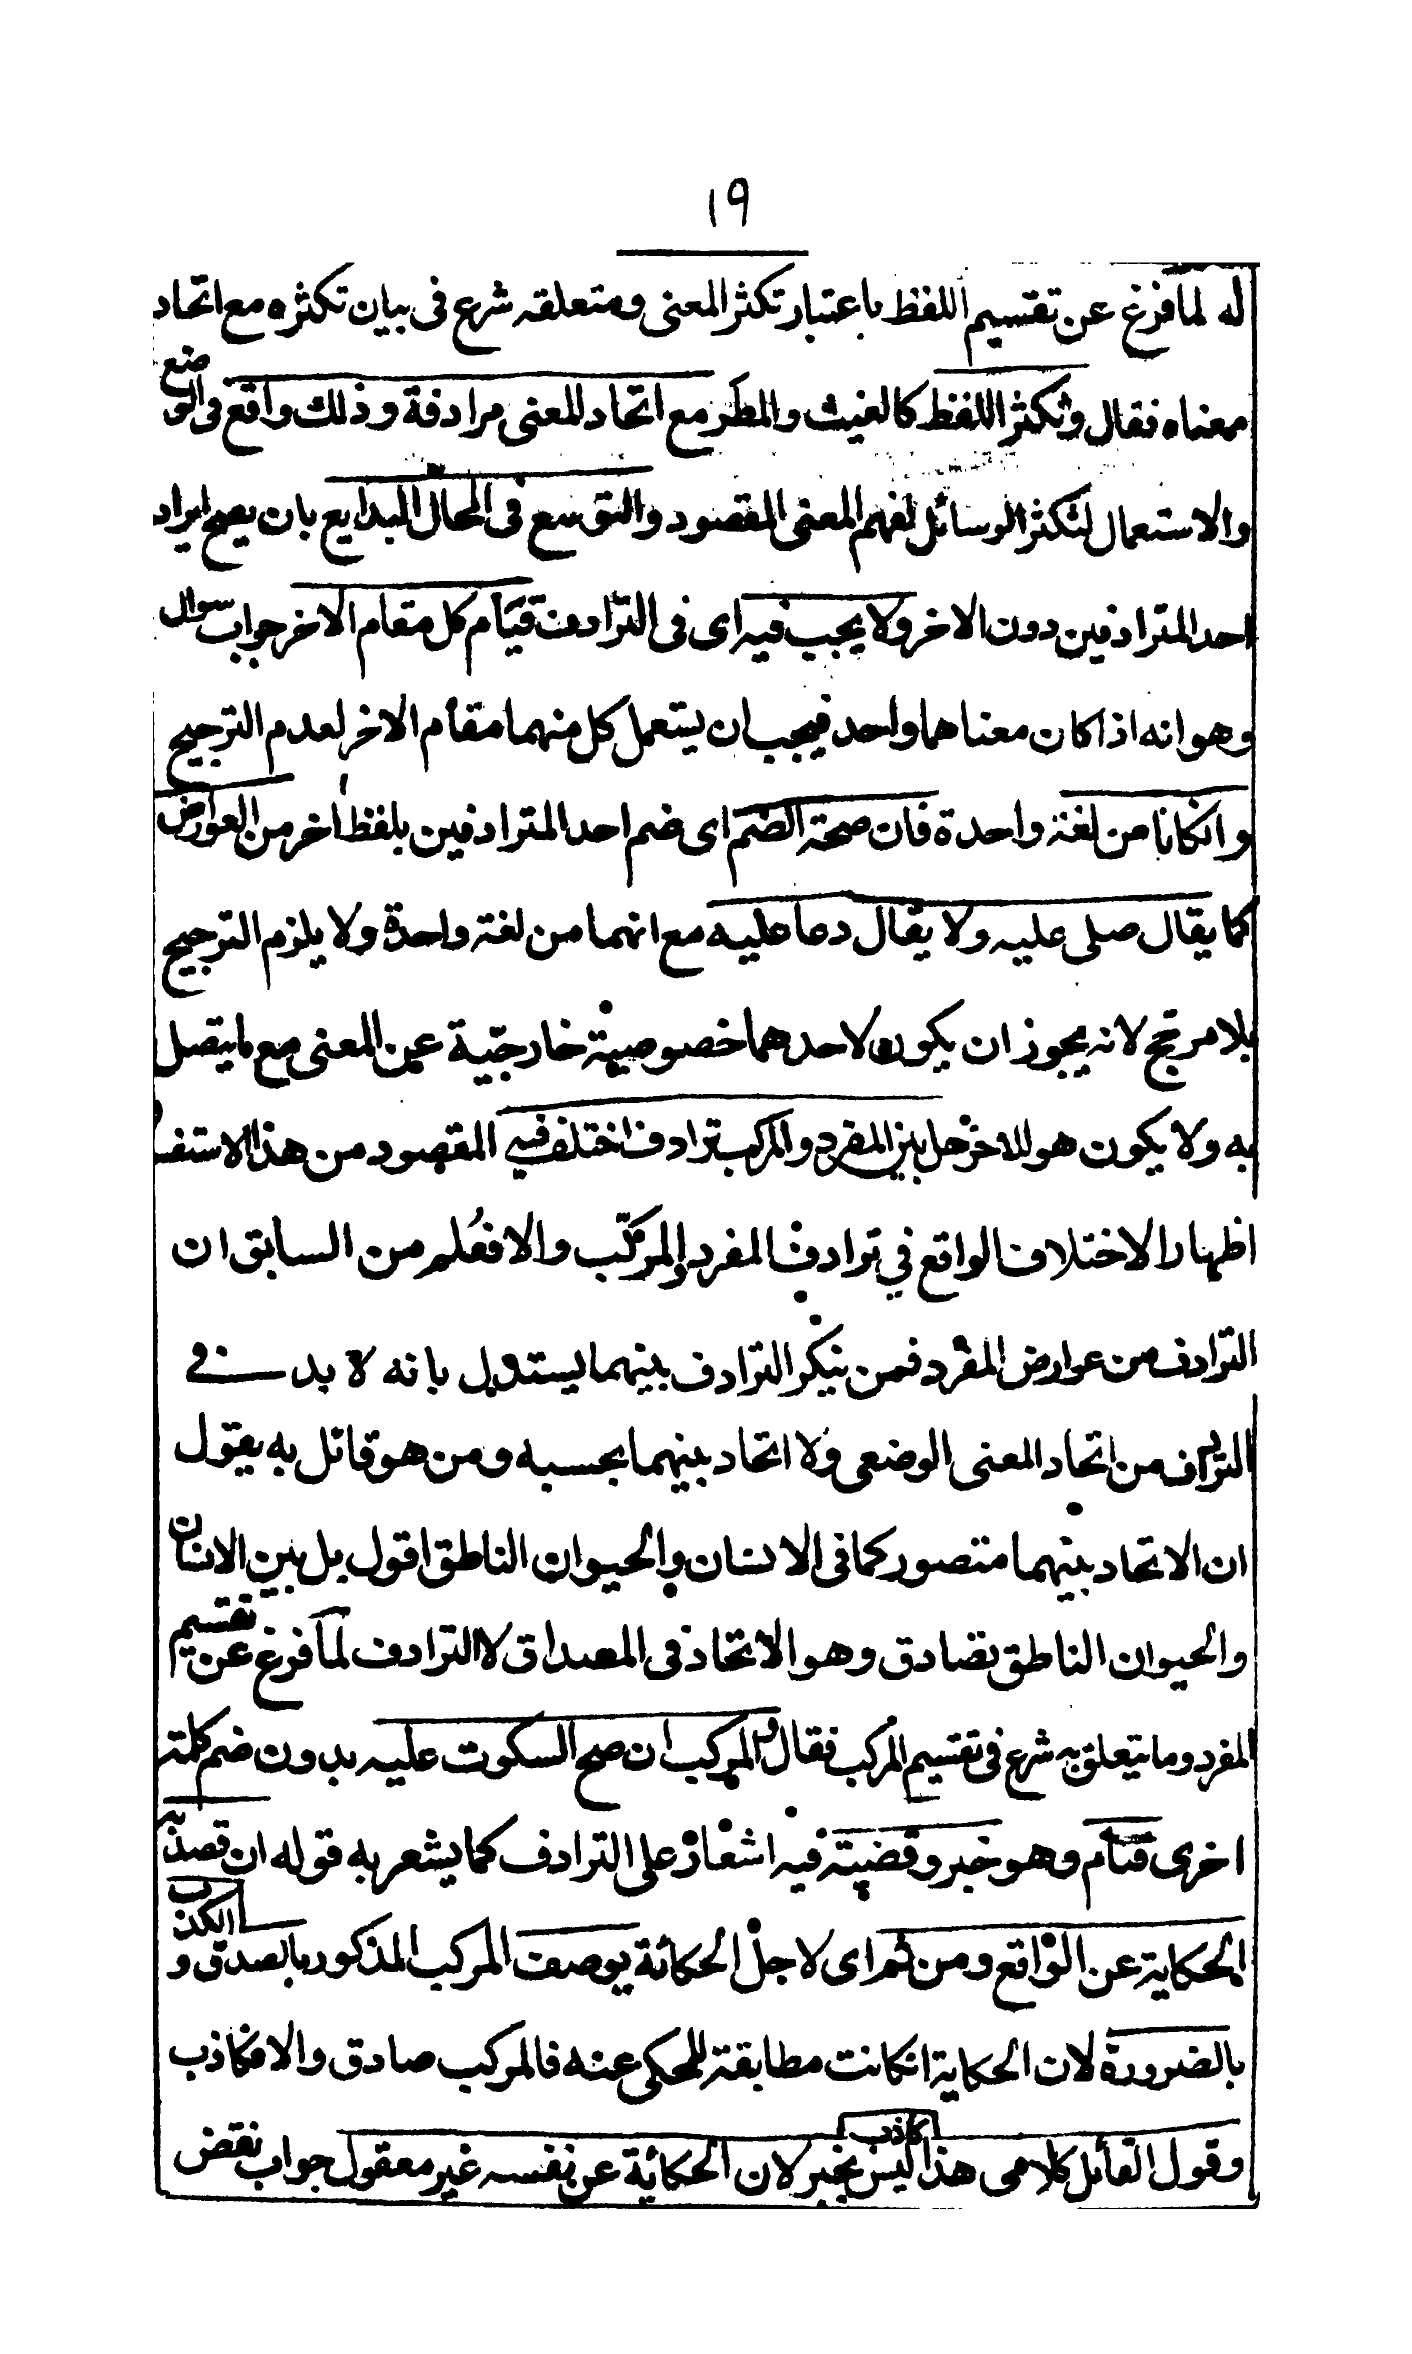 ١٩
له لما فرغ عن تقسيم اللفظ باعتبار تكثر المعنى ومتعلقه شرع فى بيان تكثره مع اتحاد
معناه فقال وتكثر اللفظ كالغيث والمطر مع اتحاد المعنى مرادفة وذلك واقع فى الوضع
والاستعمال لتكثر الوسائل لفهم المعنى المقصود والتوسع فى الحال البدايع بان يصح ايراد
احد المترادفين دون الاخر ولا يجب فيه اى فى الترادف قيام كل مقام الاخر جواب سوال
وهو انه اذا كان معناهما واحد فيجب ان يستعمل كل منهما مقام الاخر لعدم الترجيح
وانكانا من لغة واحدة فان صحة الضم اى ضم احد المترادفين بلفظ اخر من العوارض
كما يقال صلى عليه ولا يقال دعا عليه مع انهما من لغة واحدة ولا يلزم الترجيح
بلا مرجح لانه يجوز ان يكون لاحدهما خصوصية خارجية عن المعنى مع ما يتصل
به ولا يكون هو للاخر هل بين المفرد والمركب ترادف اختلف فيه المقصود من هذا الاستفـ
اظهار الاختلاف الواقع في ترادف المفرد والمركب والا فعلم من السابق ان
الترادف من عوارض المفرد فمن ينكر الترادف بينهما يستدل بانه لا بد فے
الترادف من اتحاد المعنى الوضعى ولا اتحاد بينهما بحسبه ومن هو قائل به يقول
ان الاتحاد بينهما متصور كما فى الانسان والحيوان الناطق اقول بل بين الانسان
والحيوان الناطق تصادق وهو الاتحاد فى المصداق لا الترادف لما فرغ عن تقسيم
المفرد وما يتعلق به شرع فى تقسيم المركب فقال والمركب ان صح السكوت عليه بدون ضم كلمة
اخرى فتام وهو خبر وقضية فيه اشعار على الترادف كما يشعر به قوله ان قصد به
الحكاية عن الواقع ومن ثم اى لاجل الحكائة يوصف المركب المذكور بالصدق والكذب
بالضرورة لان الحكاية انكانت مطابقة للمحكى عنه فالمركب صادق والا فكاذب
وقول القائل كلامى هذا كاذب ليس بخبر لان الحكائة عن نفسه غير معقول جواب نقض